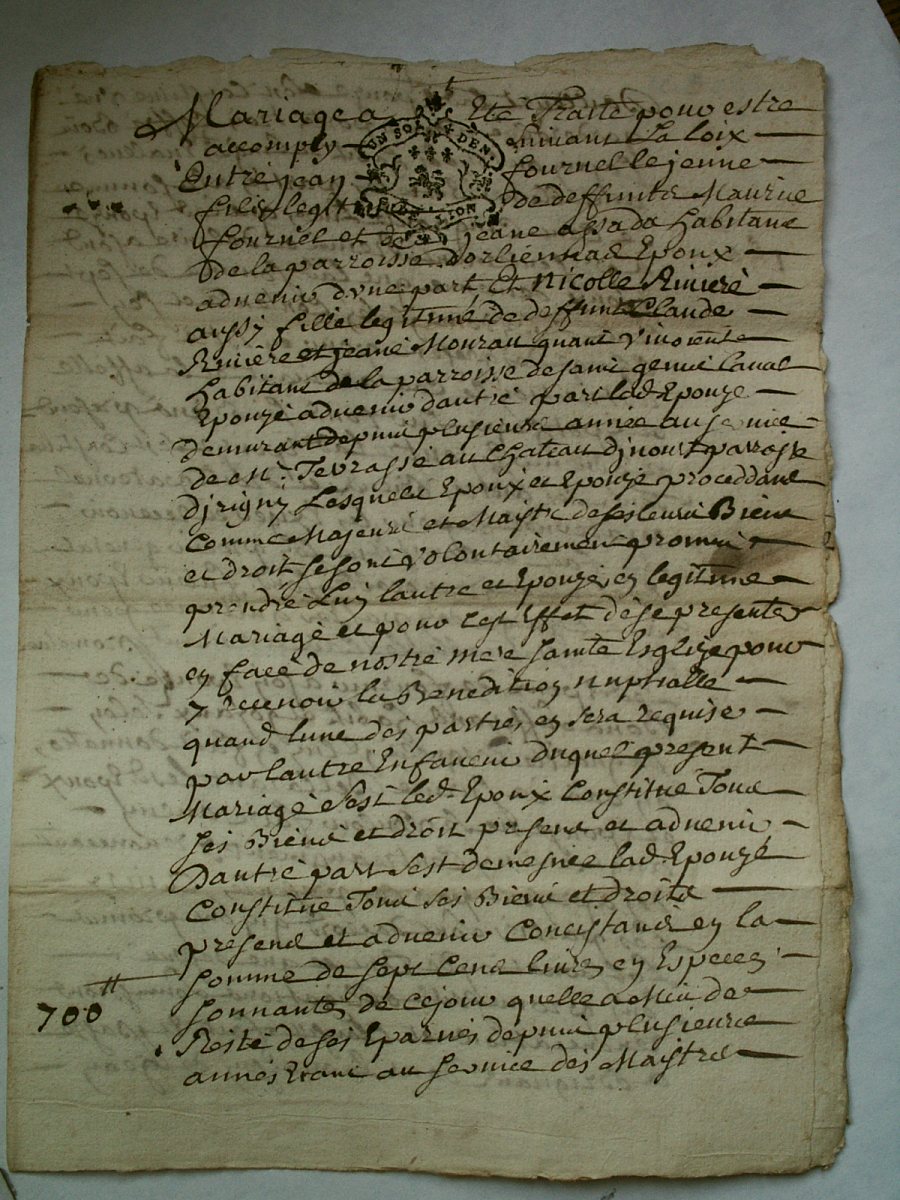 Mariage a Eté Traité pour estre
accomply suivant La loix
Entre jean fournel le jeune
fils legit de deffunts Maurice
fournel et de jeane assada habitans
de la parroisse dorlienas led Epoux
advenir dune part Et Nicolle Riviere
aussy fille legitime de deffunt Claude
Riviere et jeane Mourau quant vivoient
habitans de la parroisse de saint genis laval
Epouze advenir dautre part lad Epouze
demurant depuis plusieurs année au service
de Mr. Tevrasse au Chateau djvour parrosse
djrigny Lesquels Epoux et Epouze proceddans
comme Majeurs et Maistre de ses leurs Biens
et droit se sont volontairement promis
prendre Luy lautre et Epouzé en legitime
Mariage et pour cest Effet de se presenter
en face de nostre mere sainte Esglize pour
y recevoir la Benedition nuptialle
quand lune des parties en sera requise
par lautre En faveur duquel present
Mariage sest led. Epoux Constitué Tous
ses Biens et droit presens et advenir
Dautre part sest de mesme lad. Epouzé
Constitue Tous ses Biens et droits
presens et advenir Concistans en la
somme de sept Cens livres en Especes
700# sonnantes de ce jour quelle a Mis de
Reste de ses Eparnes depuis plusieurs
annés Etant au service des Maistres
UN SOL DEN
LION